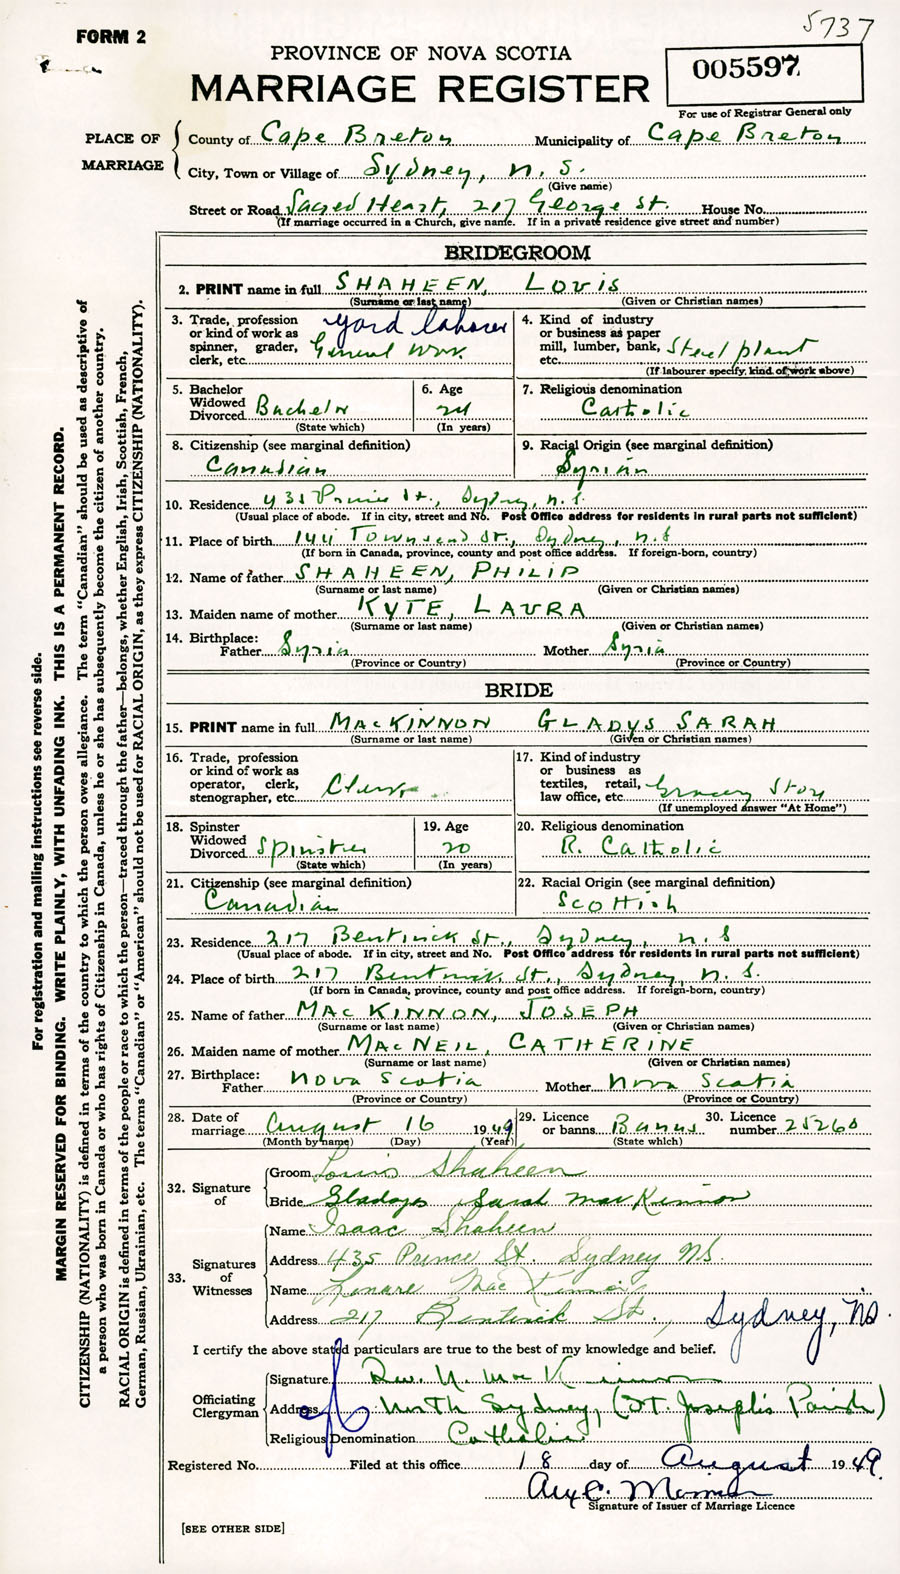 5737
FORM 2
PROVINCE OF NOVA SCOTIA
MARRIAGE REGISTER
005597
For use of Registrar General only
PLACE OF MARRIAGE
County of Cape Breton Municipality of Cape Breton
City, Town or Village of Sydney, N. S.
(Give name)
Street or Road Sacred Heart, 217 George St. House No.
(If marriage occurred in a Church, give name. If in a private residence give street and number)
BRIDEGROOM
2. PRINT name in full SHAHEEN, LOUIS
(Surname or last name) (Given or Christian names)
3. Trade, profession or kind of work as spinner, grader, clerk, etc. yard laborer General Work
4. Kind of industry or business as paper mill, lumber, bank, etc. Steel plant
(If labourer specify kind of work above)
5. Bachelor Widowed Divorced Bachelor
(State which)
6. Age 24
(In years)
7. Religious denomination
Catholic
8. Citizenship (see marginal definition)
Canadian
9. Racial Origin (see marginal definition)
Syrian
10. Residence 435 Prince St., Sydney, N.S.
(Usual place of abode. If in city, street and No. Post Office address for residents in rural parts not sufficient)
11. Place of birth 144 Townsend St., Sydney, N.S
(If born in Canada, province, county and post office address. If foreign-born, country)
12. Name of father SHAHEEN, PHILIP
(Surname or last name) (Given or Christian names)
13. Maiden name of mother KYTE, LAURA
(Surname or last name) (Given or Christian names)
14. Birthplace:
Father Syria Mother Syria
(Province or Country) (Province or Country)
BRIDE
15. PRINT name in full MacKINNON GLADYS SARAH
(Surname or last name) (Given or Christian names)
16. Trade, profession or kind of work as operator, clerk, stenographer, etc. Clerk
17. Kind of industry or business as textiles, retail, law office, etc. Grocery Store
(If unemployed answer "At Home")
18. Spinster Widowed Divorced Spinster
(State which)
19. Age 20
(In years)
20. Religious denomination
R. Catholic
21. Citizenship (see marginal definition)
Canadian
22. Racial Origin (see marginal definition)
Scottish
23. Residence 217 Bentinck St., Sydney, N.S
(Usual place of abode. If in city, street and No. Post Office address for residents in rural parts not sufficient)
24. Place of birth 217 Bentinck St., Sydney, N.S.
(If born in Canada, province, county and post office address. If foreign-born, country)
25. Name of father MacKINNON, JOSEPH
(Surname or last name) (Given or Christian names)
26. Maiden name of mother MacNEIL, CATHERINE
(Surname or last name) (Given or Christian names)
27. Birthplace:
Father Nova Scotia Mother Nova Scotia
(Province or Country) (Province or Country)
28. Date of marriage August 16 1949
(Month by name) (Day) (Year)
29. Licence or banns Banns
(State which)
30. Licence number 25260
32. Signature of
Groom Louis Shaheen
Bride Gladyes Sarah MacKinnon
33. Signatures of Witnesses
Name Isaac Shaheen
Address 435 Prince St. Sydney NS.
Name MacKinnon
Address 217 Bentinck St., Sydney, NS
I certify the above stated particulars are true to the best of my knowledge and belief.
Officiating Clergyman
Signature Rev. MacKinnon
Address North Sydney, (St. Joseph's Parish)
Religious Denomination Catholic
Registered No. Filed at this office 18 day of August 1949.
Signature of Issuer of Marriage Licence
[SEE OTHER SIDE]
For registration and mailing instructions see reverse side.
MARGIN RESERVED FOR BINDING. WRITE PLAINLY, WITH UNFADING INK. THIS IS A PERMANENT RECORD.
CITIZENSHIP (NATIONALITY) is defined in terms of the country to which the person owes allegiance. The term "Canadian" should be used as descriptive of
a person who was born in Canada or who has rights of Citizenship in Canada, unless he or she has subsequently become the citizen of another country.
RACIAL ORIGIN is defined in terms of the people or race to which the person—traced through the father—belongs, whether English, Irish, Scottish, French,
German, Russian, Ukrainian, etc. The terms "Canadian" or "American" should not be used for RACIAL ORIGIN, as they express CITIZENSHIP (NATIONALITY).